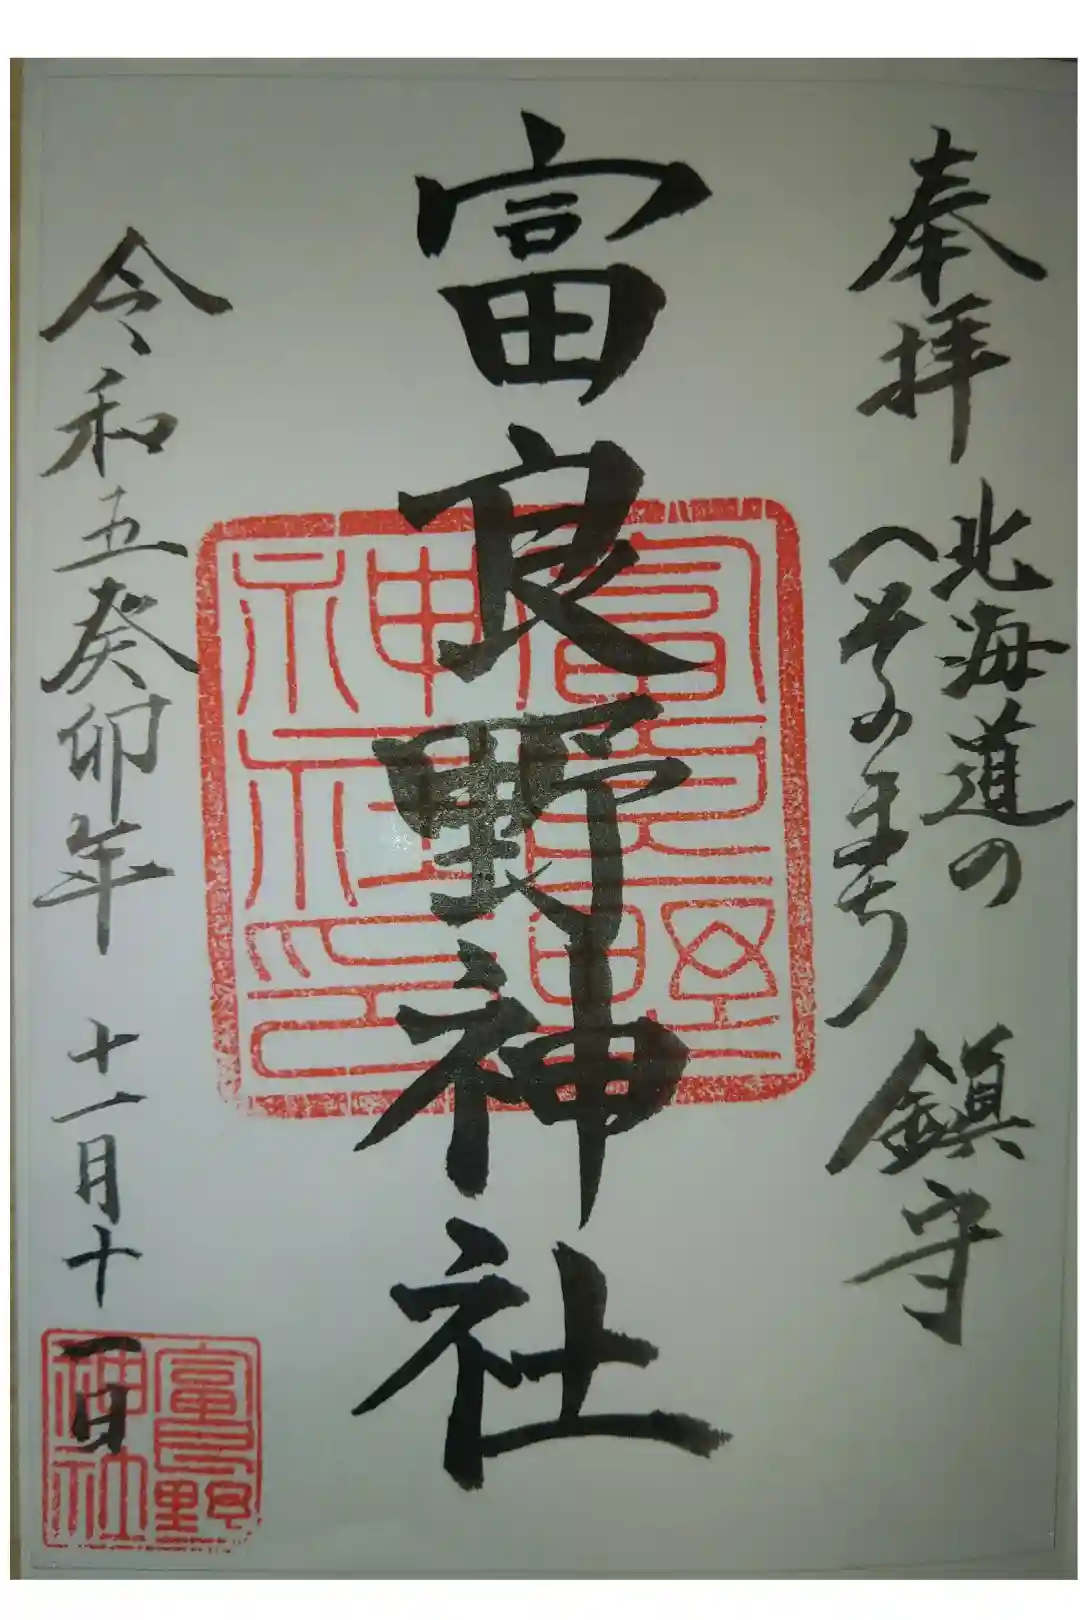 奉拝
北海道の
へそのまち
鎮守
富良野神社
富良野神社印
令和五癸卯年 十一月十一日
富良野
神社